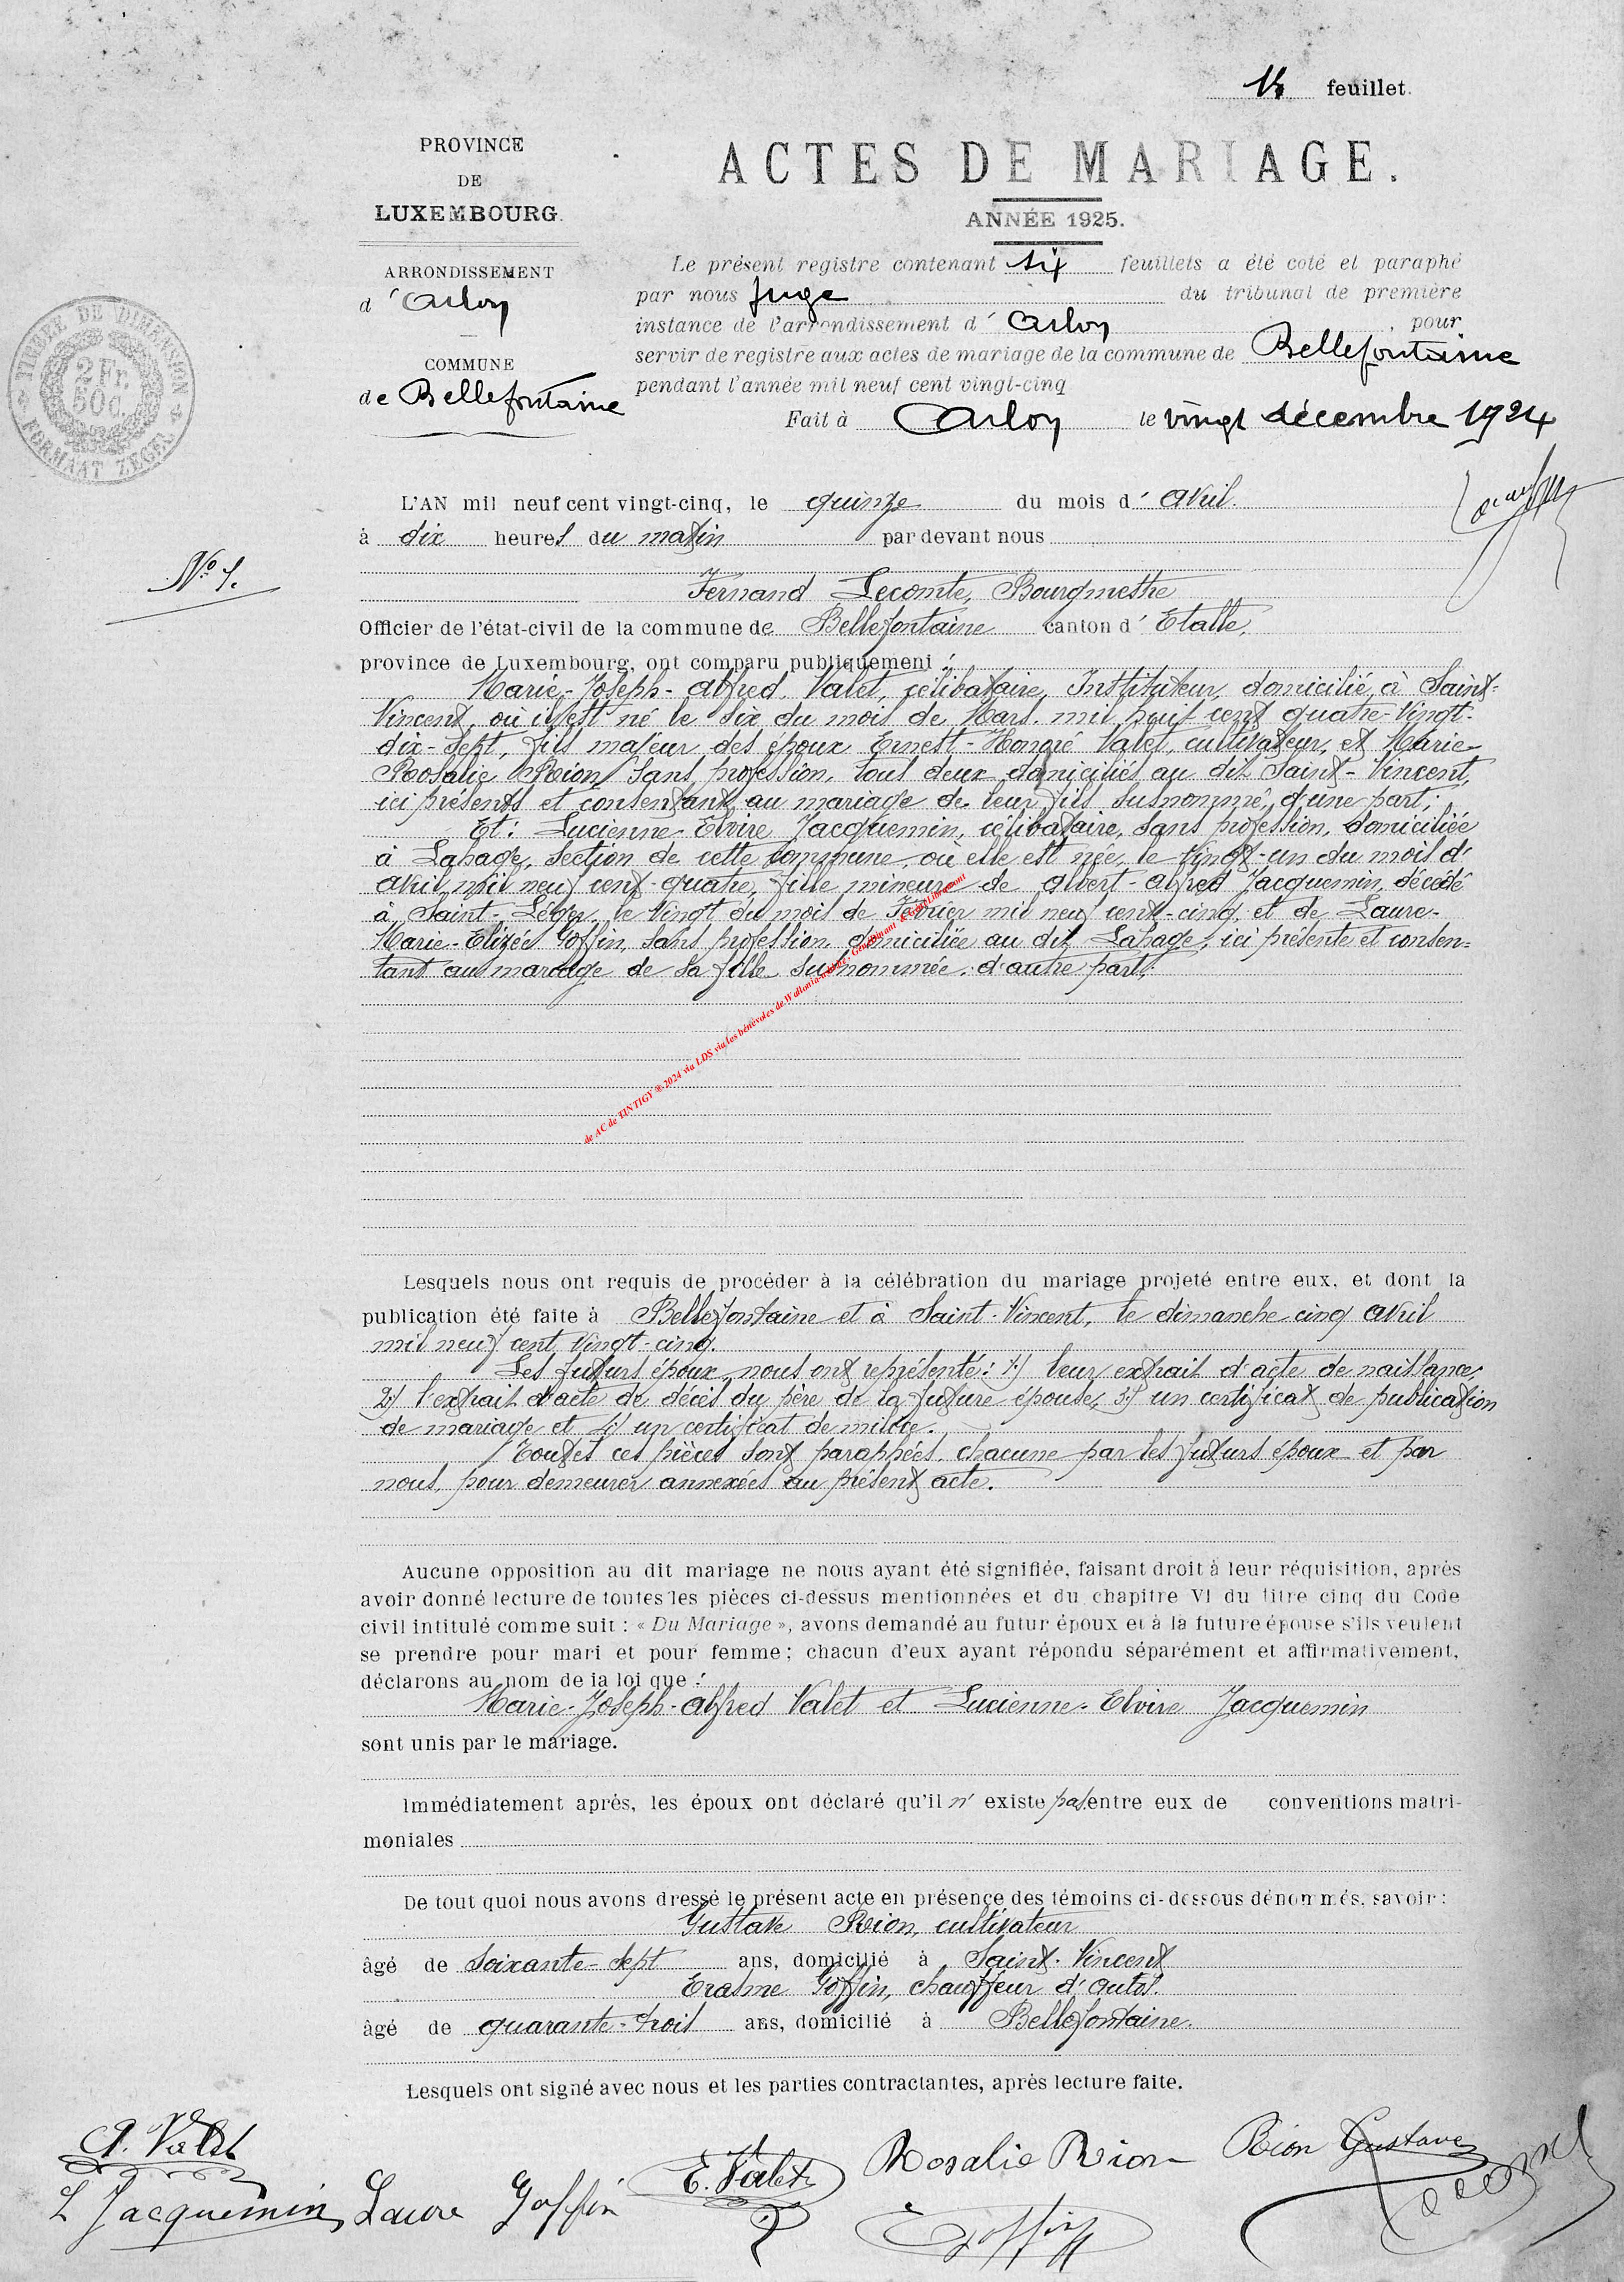 feuillet.
PROVINCE
DE
LUXEMBOURG.
ARRONDISSEMENT
d'Arlon
COMMUNE
de Bellefontaine
TIMBRE DE DIMENSION
2 Fr.
50 C.
FORMAAT ZEGEL
ACTES DE MARIAGE.
ANNÉE 1925.
Le présent registre contenant six feuillets a été coté et paraphé
par nous Juge du tribunal de première
instance de l'arrondissement d'Arlon, pour
servir de registre aux actes de mariage de la commune de Bellefontaine
pendant l'année mil neuf cent vingt-cinq
Fait à Arlon le vingt décembre 1924
N° 1.
L'AN mil neuf cent vingt-cinq, le quinze du mois d'avril.
à dix heures du matin par devant nous
Fernand Lecomte, Bourgmestre
Officier de l'état-civil de la commune de Bellefontaine canton d'Etalle,
province de Luxembourg, ont comparu publiquement :
Marie-Joseph-Alfred Valet, célibataire, Instituteur, domicilié à Saint-
Vincent, où il est né le six du mois de Mars mil huit cent quatre-Vingt-
dix-sept, fils majeur des époux Ernest-Honoré Valet, cultivateur, et Marie-
Rosalie Rion Sans profession, tous deux domiciliés au dit Saint-Vincent,
ici présents et consentant au mariage de leur fils susnommé, d'une part ;
Et : Lucienne-Elvire Jacquemin, célibataire, sans profession, domiciliée
à Lahage, section de cette commune, où elle est née, le vingt-un du mois d'
avril, mil neuf cent-quatre, fille mineure de Albert-Alfred Jacquemin, décédé
à Saint-Léger, le vingt du mois de Février mil neuf cent-cinq, et de Laure-
Marie-Elizée Goffin, sans profession, domiciliée au dit Lahage, ici présente et consen=
tant au mariage de sa fille susnommée, d'autre part.
de AC de TINTIGY ® 2024 via LDS via les bénévoles de
Lesquels nous ont requis de procéder à la célébration du mariage projeté entre eux, et dont la
publication été faite à Bellefontaine et à Saint-Vincent, le dimanche cinq avril
mil neuf cent vingt-cinq.
Les futurs époux nous ont représenté : 1) leur extrait d'acte de naissance,
2) l'extrait d'acte de décès du père de la future épouse, 3) un certificat de publication
de mariage et 4) un certificat de milice.
Toutes ces pièces sont paraphées, chacune par les futurs époux et par
nous, pour demeurer annexées au présent acte.
Aucune opposition au dit mariage ne nous ayant été signifiée, faisant droit à leur réquisition, après
avoir donné lecture de toutes les pièces ci-dessus mentionnées et du chapitre VI du titre cinq du Code
civil intitulé comme suit : « Du Mariage », avons demandé au futur époux et à la future épouse s'ils veulent
se prendre pour mari et pour femme ; chacun d'eux ayant répondu séparément et affirmativement,
déclarons au nom de la loi que :
Marie-Joseph-Alfred Valet et Lucienne-Elvire Jacquemin
sont unis par le mariage.
Immédiatement après, les époux ont déclaré qu'il n'existe pas entre eux de conventions matri-
moniales
De tout quoi nous avons dressé le présent acte en présence des témoins ci-dessous dénommés, savoir :
Gustave Rion, cultivateur
âgé de soixante-sept ans, domicilié à Saint-Vincent
Erasme Goffin, chauffeur d'autos.
âgé de quarante-trois ans, domicilié à Bellefontaine.
Lesquels ont signé avec nous et les parties contractantes, après lecture faite.
A. Valet
E. Valet
Rosalie Rion
Rion Gustave
L Jacquemin
Laure Goffin
Goffin